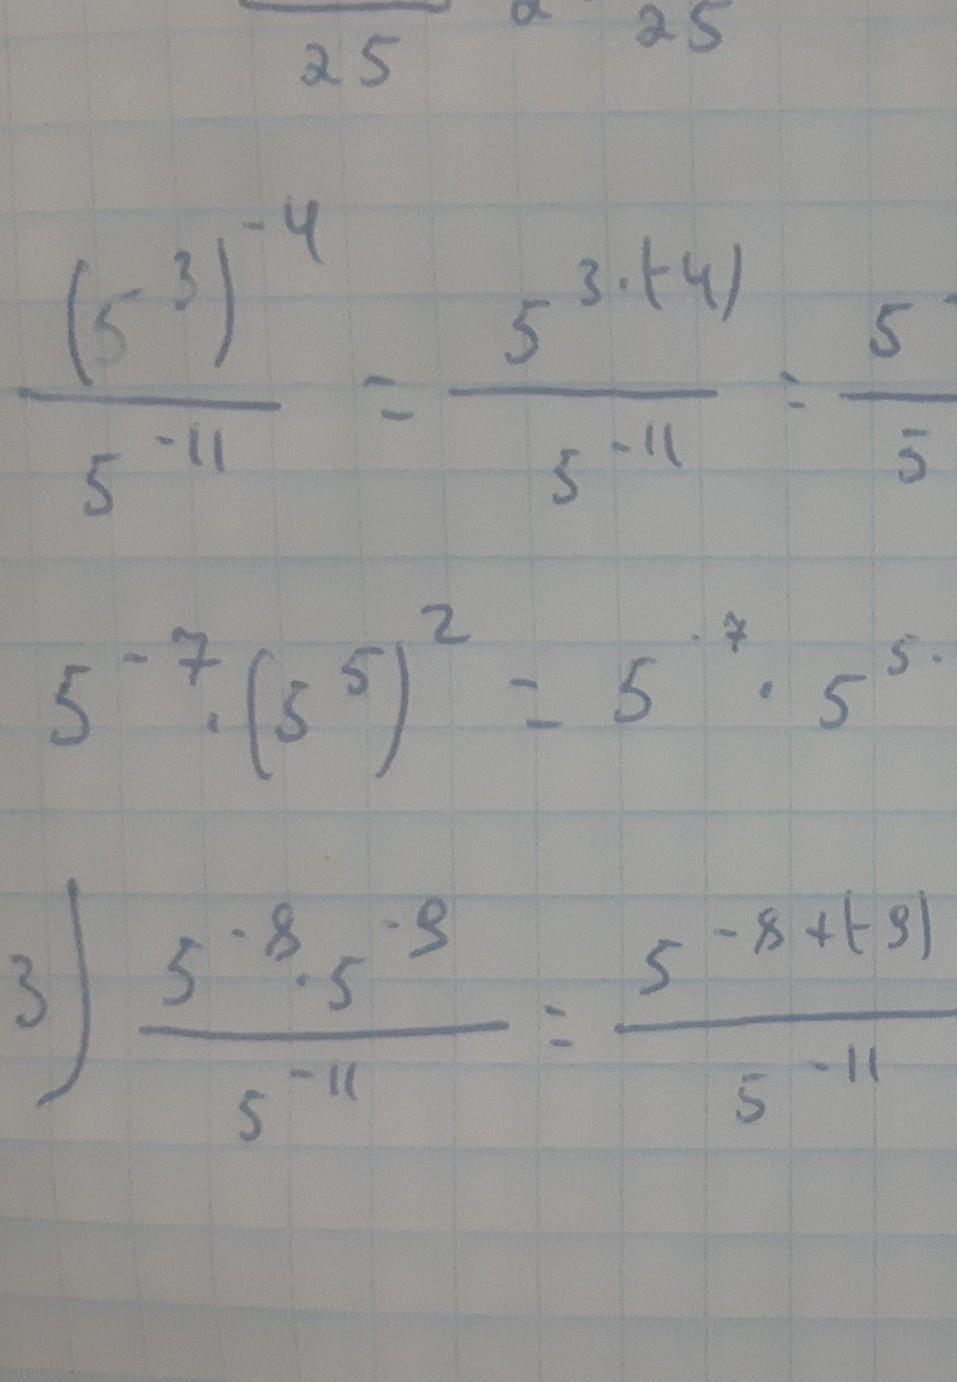 25 25
(5³)⁻⁴ / 5⁻¹¹ = 5³·⁽⁻⁴⁾ / 5⁻¹¹ = 5⁻ / 5
5⁻⁷·(5⁵)² = 5⁻⁷·5⁵·
3) 5⁻⁸·5⁻⁹ / 5⁻¹¹ = 5⁻⁸⁺⁽⁻⁹⁾ / 5⁻¹¹